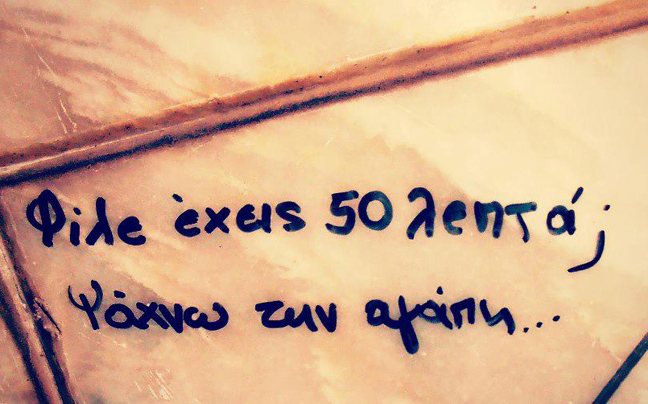 Φίλε έχεις 50 λεπτά;
Ψάχνω την αγάπη...